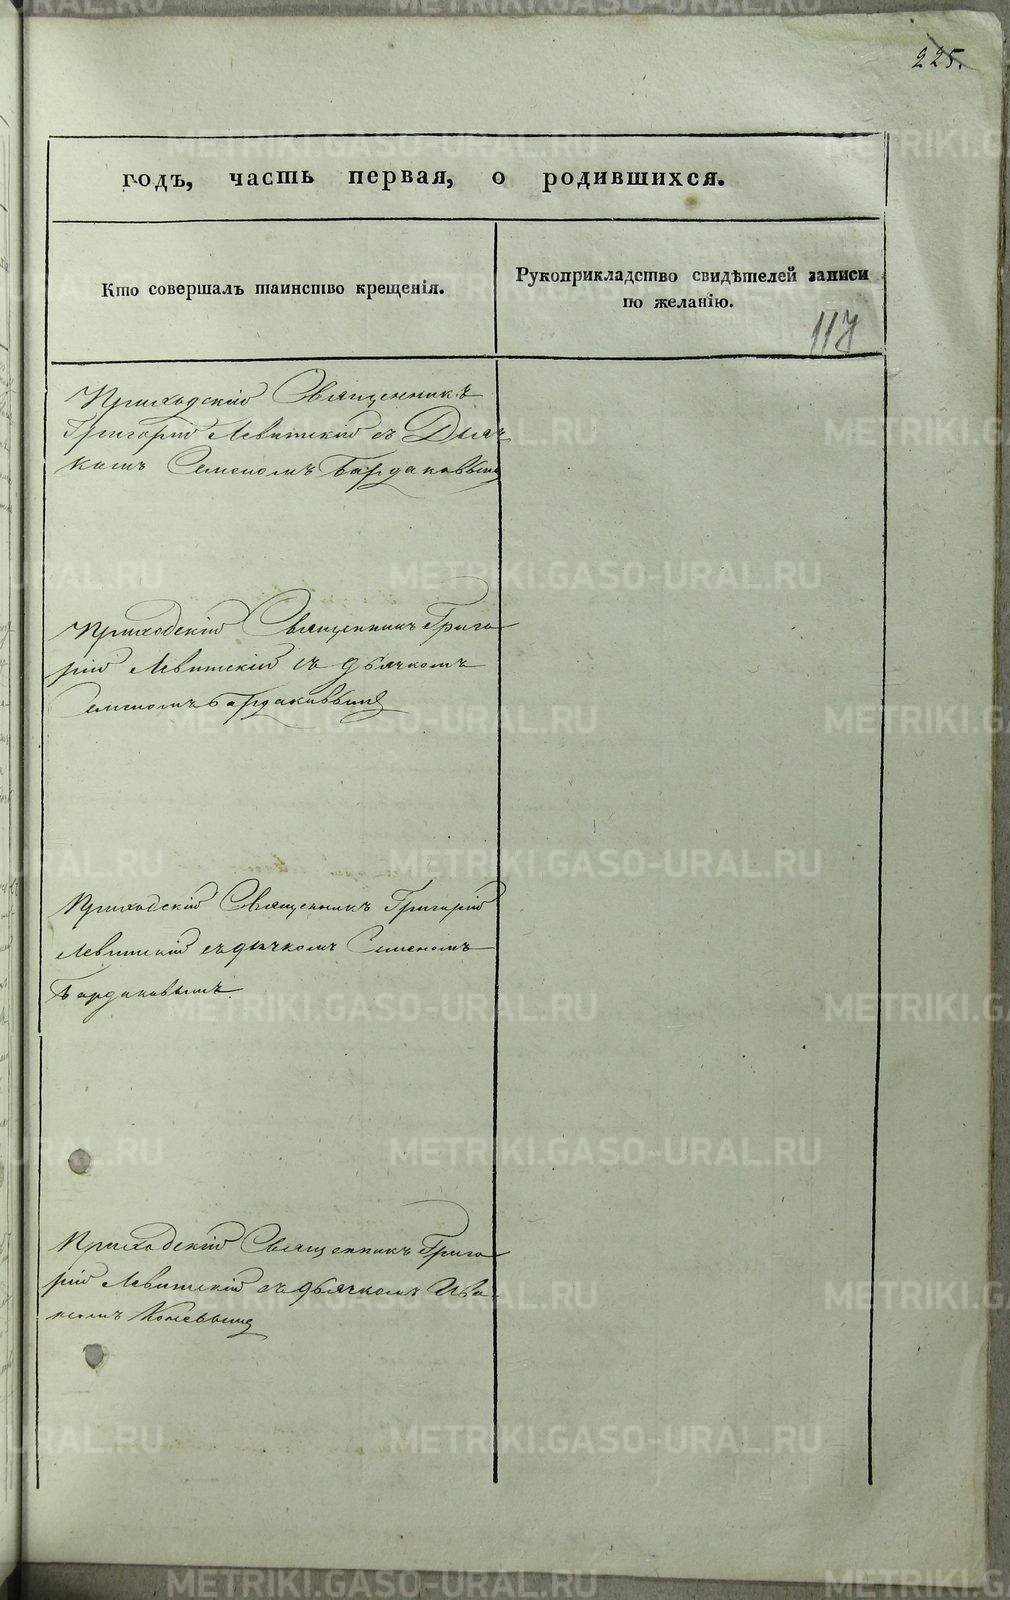 225.
годъ, часть первая, о родившихся.
Кто совершалъ таинство крещенія.
Рукоприкладство свидѣтелей записи
по желанію.
117
Приходскій Священникъ
Григорій Левитскій съ Дьяч
комъ Семеномъ Бардаковымъ
Приходскій Священникъ Григо
рій Левитскій съ дьячкомъ
Семеномъ Бардаковымъ
Приходскій Священникъ Григорій
Левитскій съ дьячкомъ Семеномъ
Бардаковымъ.
Приходскій Священникъ Григо
рій Левитскій съ дьячкомъ Ива-
номъ Коневымъ
METRIKI.GASO-URAL.RU